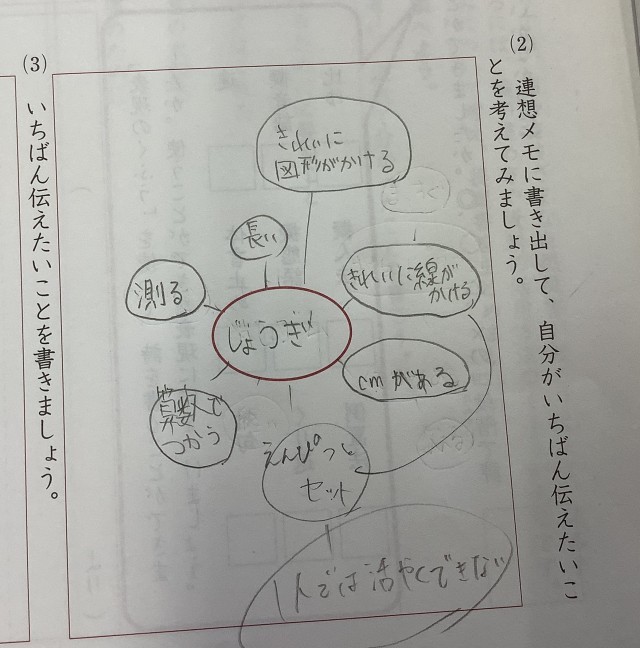 (2) 連想メモに書き出して、自分がいちばん伝えたいこ
とを考えてみましょう。
きれいに
図形がかける
長い
測る
きれいに線が
かける
じょうぎ
cmがある
算数で
つかう
えんぴつと
セット
1人では活やくできない
(3) いちばん伝えたいことを書きましょう。